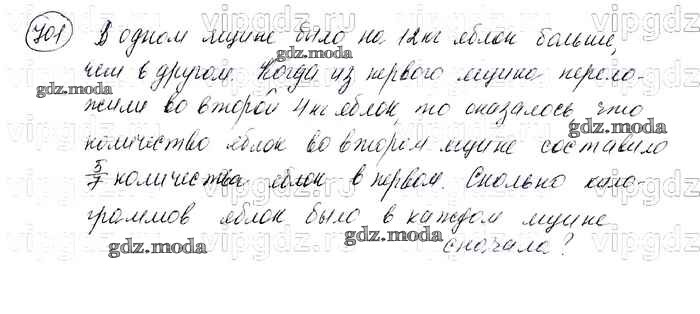 701 В одном ящике было на 12 кг яблок больше,
чем в другом. Когда из первого ящика перело-
жили во второй 4 кг яблок, то оказалось, что
количество яблок во втором ящике составило
5/7 количества яблок в первом. Сколько кило-
граммов яблок было в каждом ящике
сначала?
gdz.moda
gdz.moda
gdz.moda
gdz.moda
gdz.moda
gdz.moda
vipgdz